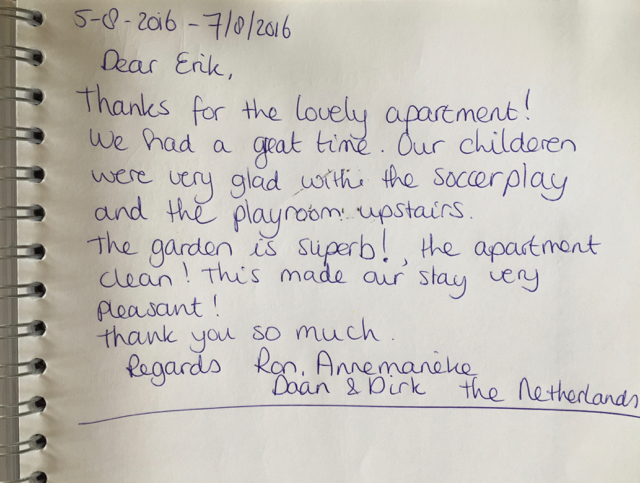 5-8-2016 - 7/8/2016
Dear Erik,
Thanks for the lovely apartment!
We had a great time. Our childeren
were very glad with the soccerplay
and the playroom upstairs.
The garden is superb!, the apartment
clean! This made our stay very
pleasant!
Thank you so much.
Regards Ron, Annemarieke
Daan & Dirk the Netherlands